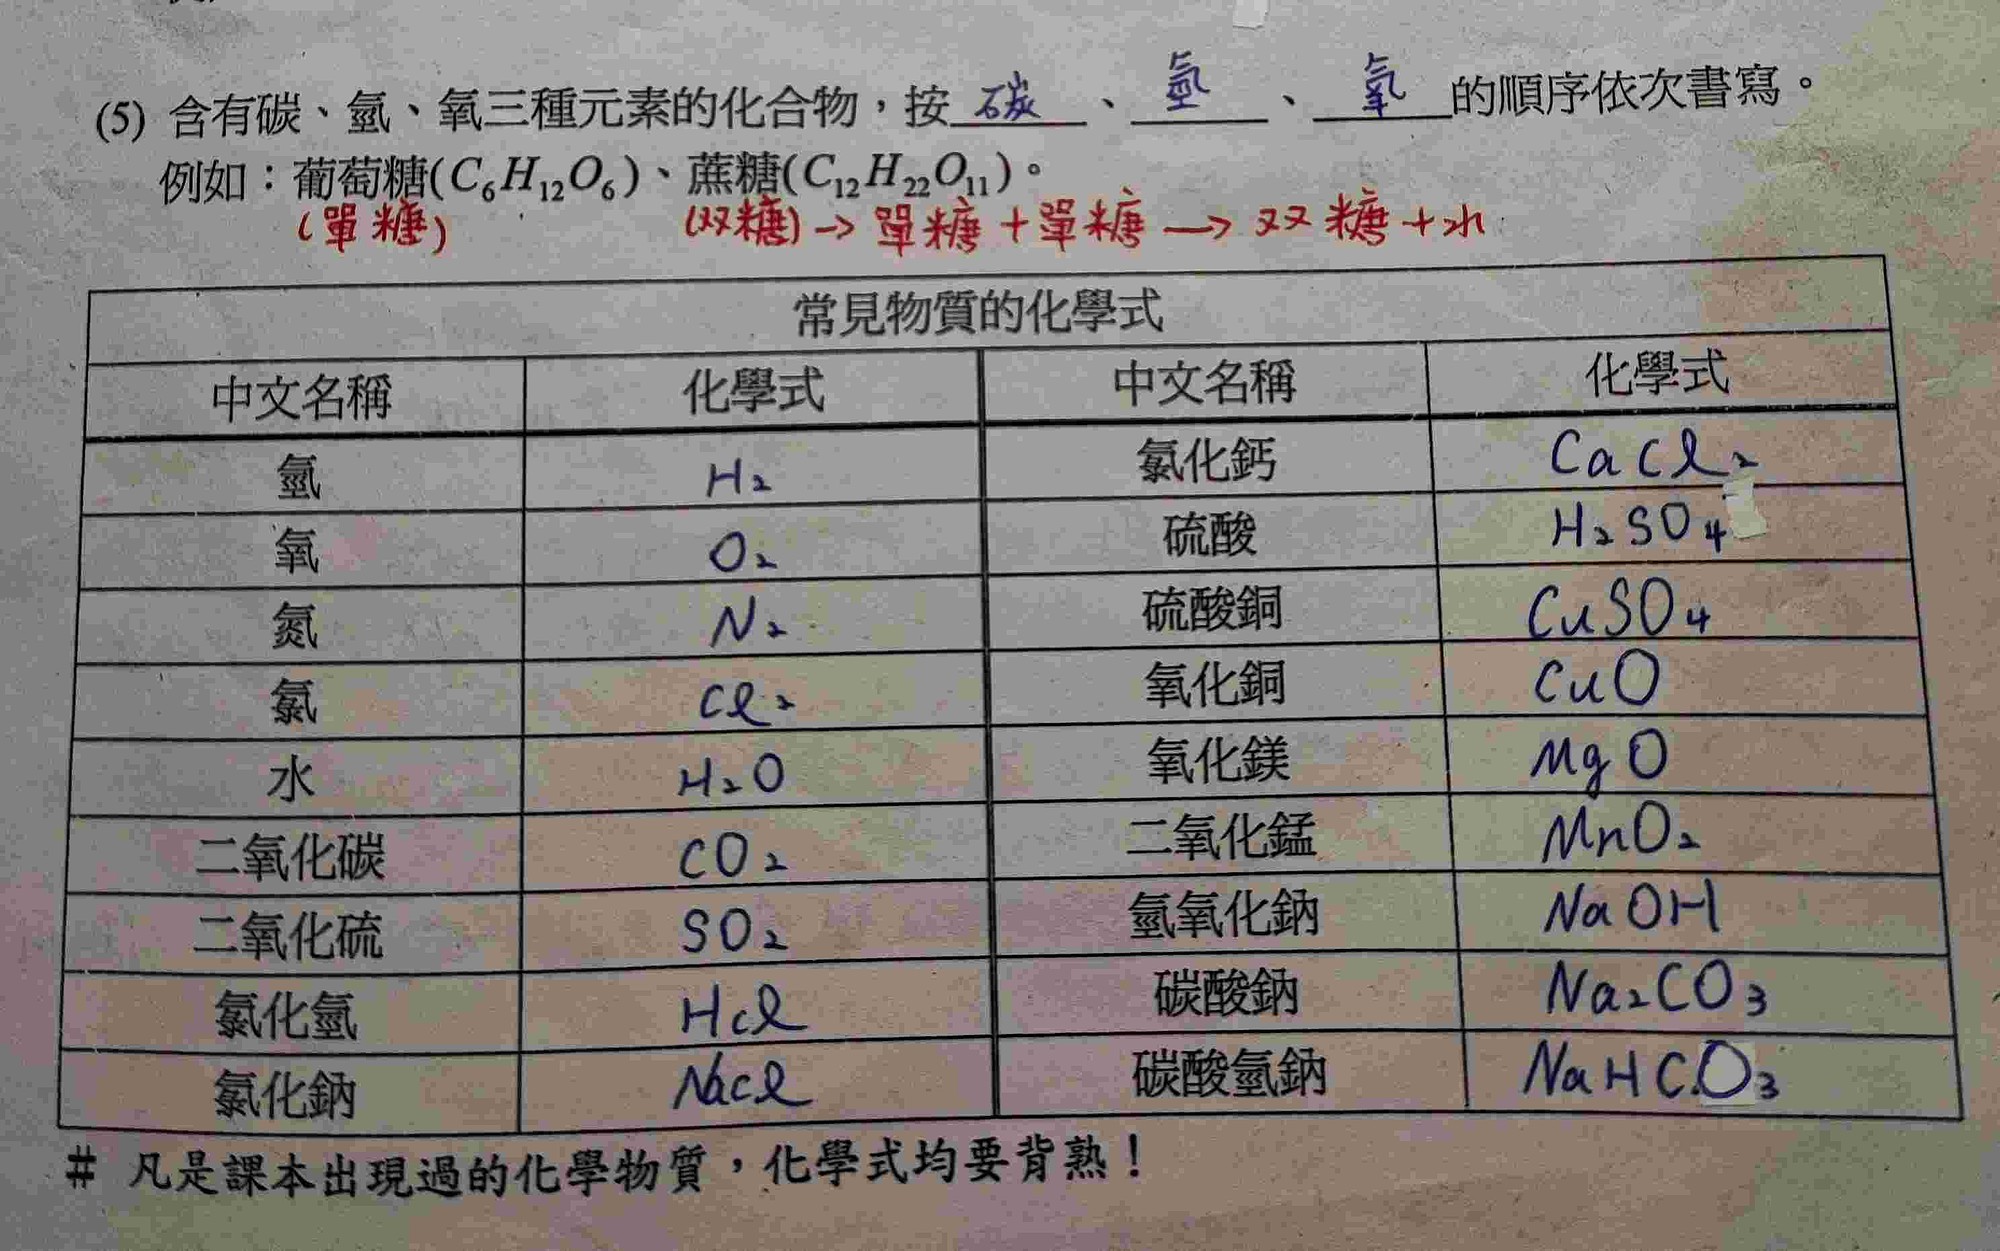 (5) 含有碳、氫、氧三種元素的化合物，按 碳 、 氫 、 氧 的順序依次書寫。
例如：葡萄糖(C₆H₁₂O₆)、蔗糖(C₁₂H₂₂O₁₁)。
(單糖) (双糖)→單糖+單糖→双糖+水
常見物質的化學式
中文名稱 化學式 中文名稱 化學式
氫 H₂ 氯化鈣 CaCl₂
氧 O₂ 硫酸 H₂SO₄
氮 N₂ 硫酸銅 CuSO₄
氯 Cl₂ 氧化銅 CuO
水 H₂O 氧化鎂 MgO
二氧化碳 CO₂ 二氧化錳 MnO₂
二氧化硫 SO₂ 氫氧化鈉 NaOH
氯化氫 HCl 碳酸鈉 Na₂CO₃
氯化鈉 NaCl 碳酸氫鈉 NaHCO₃
# 凡是課本出現過的化學物質，化學式均要背熟！